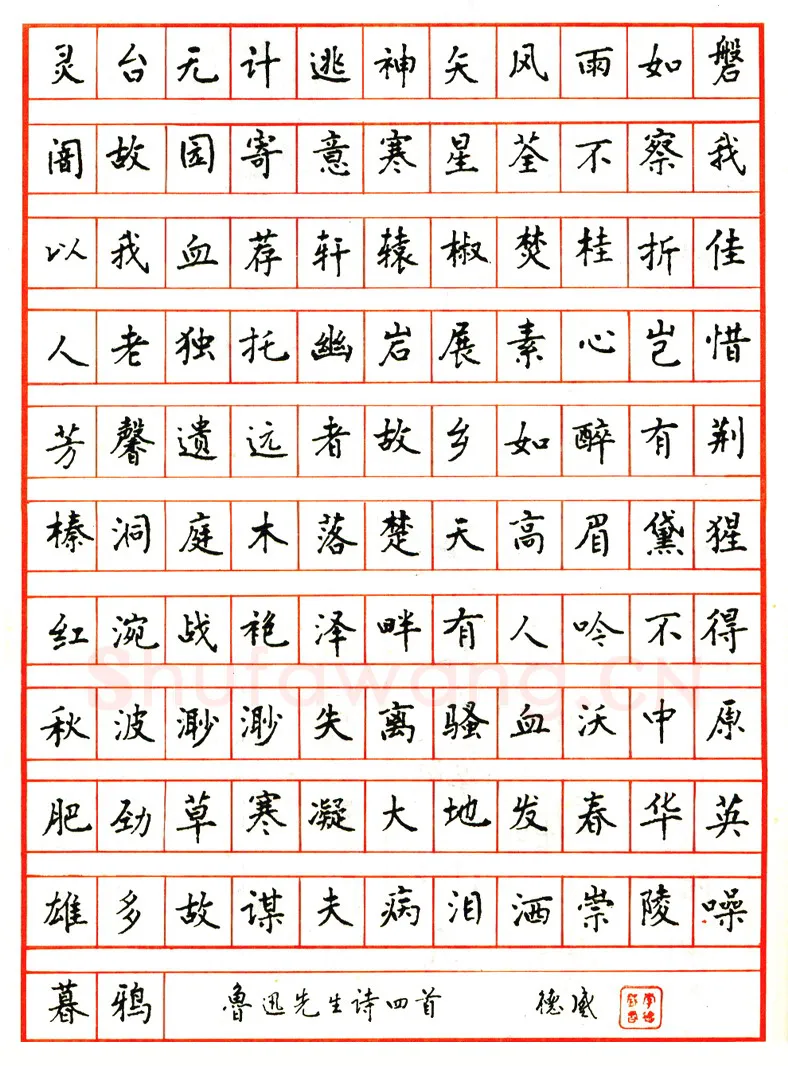 灵台无计逃神矢风雨如磐
闇故园寄意寒星荃不察我
以我血荐轩辕椒焚桂折佳
人老独托幽岩展素心岂惜
芳馨遗远者故乡如醉有荆
榛洞庭木落楚天高眉黛猩
红涴战袍泽畔有人吟不得
Shufawang.CN
秋波渺渺失离骚血沃中原
肥劲草寒凝大地发春华英
雄多故谋夫病泪洒崇陵噪
暮鸦 鲁迅先生诗四首 德威